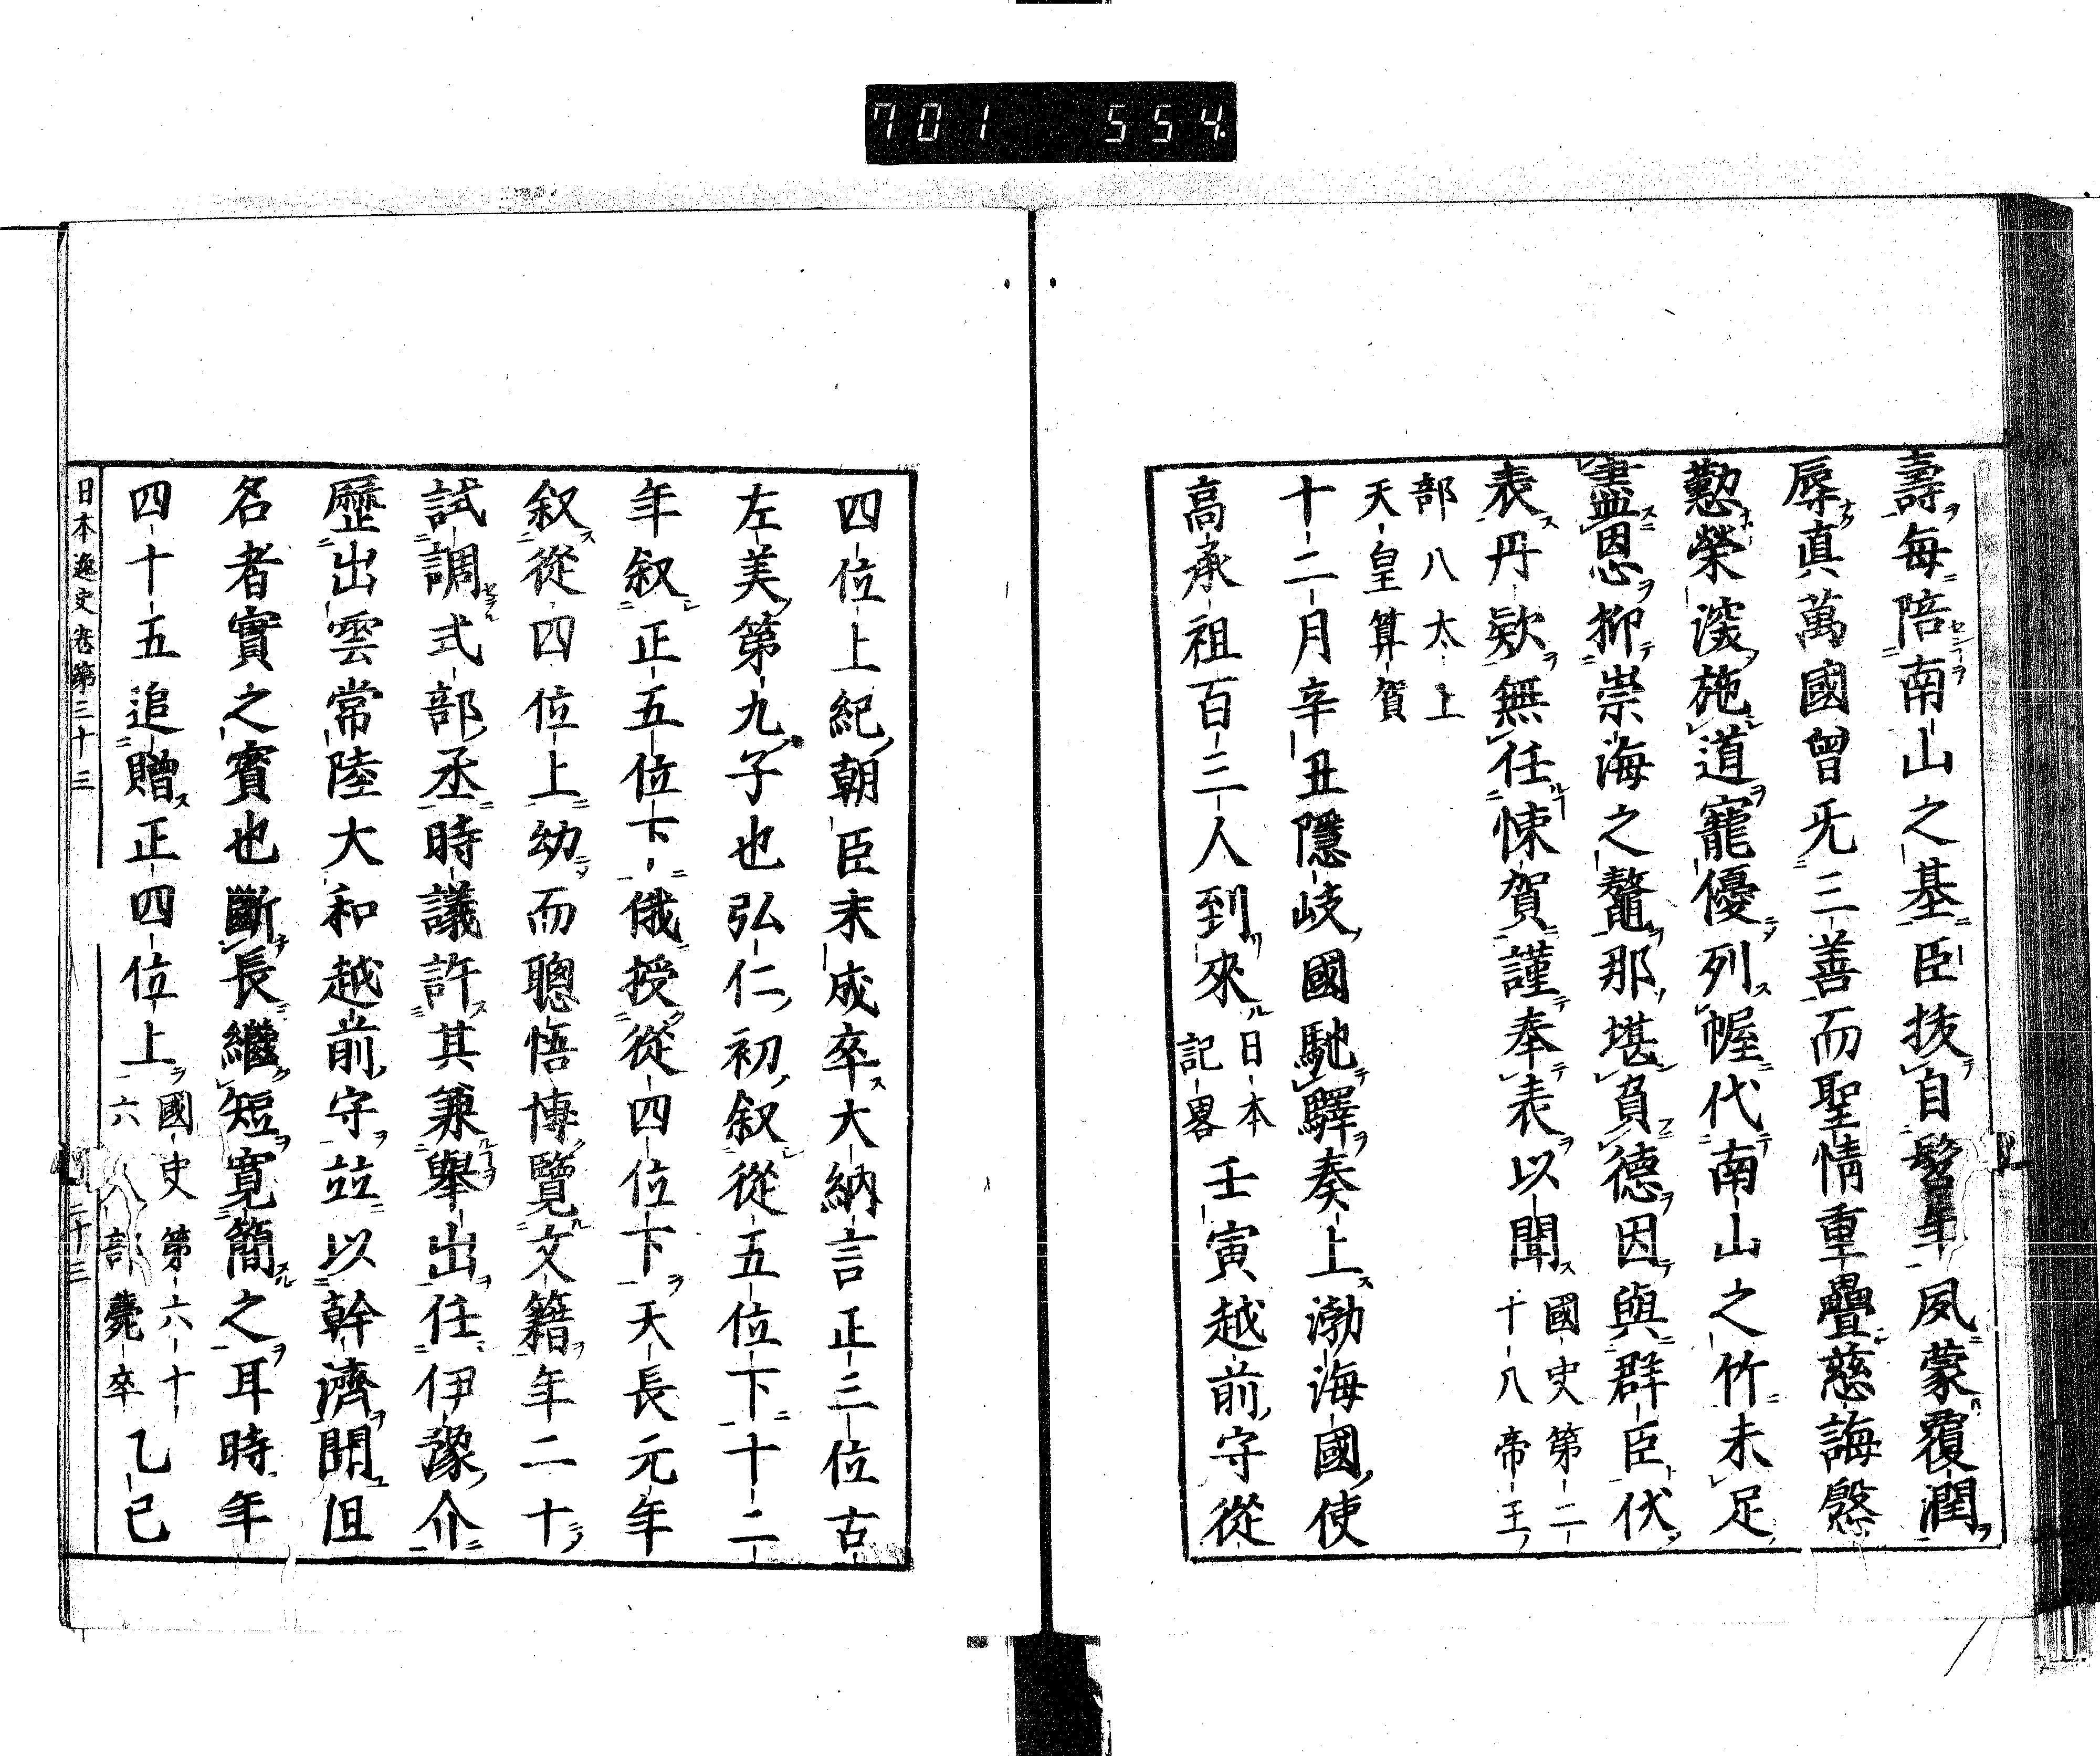 701 554.
壽每陪南山之基臣抜自髫年夙蒙覆潤
辱真萬國曾无三善而聖情重疊慈誨慇
懃榮渥施道寵優列幄代南山之竹未足
盡恩抑崇海之鼇那堪負德因與群臣伏
表丹欵無任悚賀謹奉表以聞國史第二
十八帝王
部八太上
天皇算賀
十二月辛丑隱岐國馳驛奏上渤海國使
高承祖百三人到來日本
記畧壬寅越前守從
四位上紀朝臣末成卒大納言正三位古
左美第九子也弘仁初叙從五位下十二
年叙正五位下俄授從四位下天長元年
叙從四位上幼而聰悟博覽文籍年二十
試調式部丞時議許其兼舉出任伊豫介
歷出雲常陸大和越前守竝以幹濟聞但
名者實之賓也斷長繼短寬簡之耳時年
四十五追贈正四位上國史第六十
六 八部薨卒乙巳
日本逸史卷第三十三
二十三